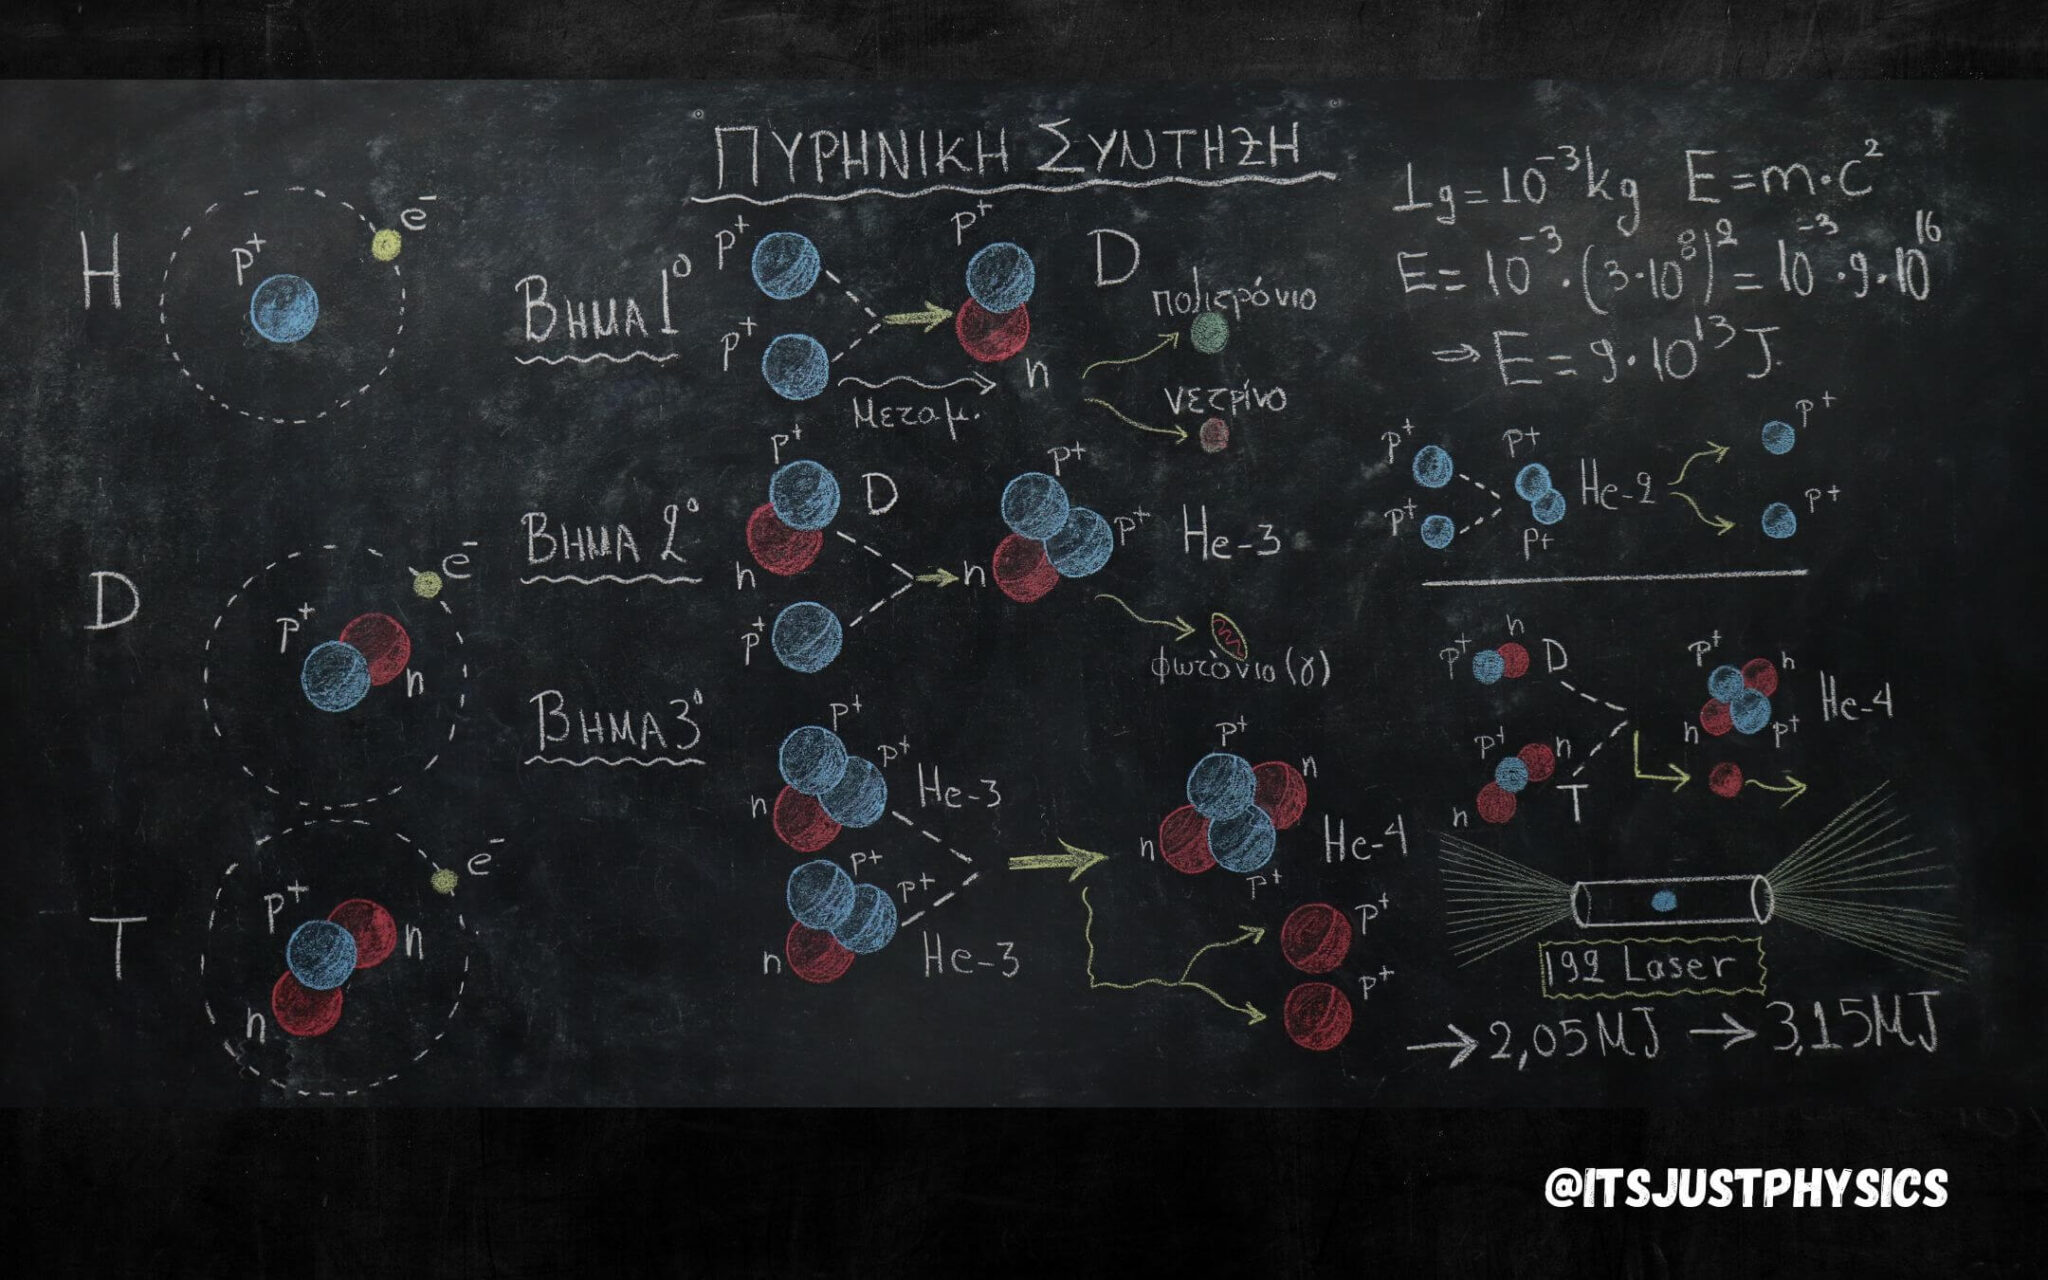 ΠΥΡΗΝΙΚΗ ΣΥΝΤΗΞΗ
H
p⁺
e⁻
D
p⁺
n
e⁻
T
p⁺
n
n
e⁻
ΒΗΜΑ 1⁰
p⁺
p⁺
Μεταμ.
p⁺
n
D
πολιτρόνιο
νετρίνο
ΒΗΜΑ 2⁰
p⁺
D
n
p⁺
p⁺
n
p⁺
He-3
φωτόνιο (γ)
ΒΗΜΑ 3⁰
p⁺
p⁺
n
He-3
p⁺
p⁺
n
He-3
p⁺
n
n
p⁺
He-4
p⁺
p⁺
1g = 10⁻³kg E = m·c²
E = 10⁻³·(3·10⁸)² = 10⁻³·9·10¹⁶
⇒ E = 9·10¹³ J.
p⁺
p⁺
p⁺
p⁺
He-2
p⁺
p⁺
p⁺
n
D
p⁺
n
n
T
p⁺
n
n
p⁺
He-4
192 Laser
→ 2,05MJ → 3,15MJ
@ITSJUSTPHYSICS